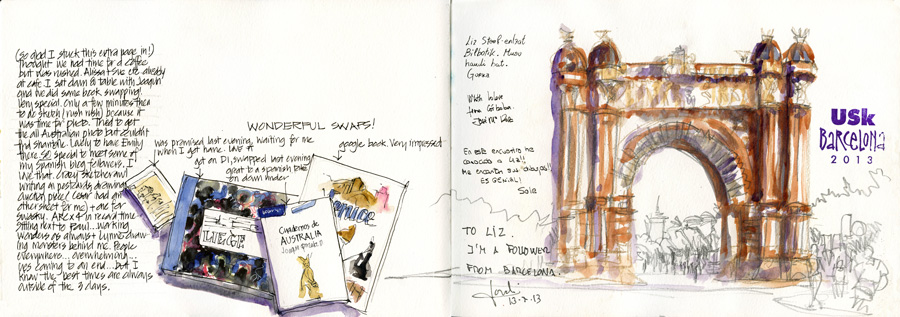 (so glad I stuck this extra page in!)
Thought we had time for a coffee
but was rushed. Alissa + Sue are already
at cafe. I sat down @ table with Joaquin
and we did some book swapping!
Very special. Only a few minutes then
to do sketch (rush rush) because it
was time for photo. Tried to get
the all Australian photo but couldn't
find Shantane. Lovely to have Emily
there. So special to meet some of
my Spanish blog followers. I
like that. Crazy sketching and
writing on postcards, drawing
another one (Cesar had got
other sheet for me) + one for
Swasky. Arc x 4 in record time
sitting next to Paul... working
wonders as always + Lynne drawing
monsters behind me. People
everywhere... overwhelming...
yes coming to an end... but I
know the best times are always
outside of the 3 days.
WONDERFUL SWAPS!
was promised last evening, waiting for me
when I got home. Late
got on D1, swapped last evening
great to a spanish
on down under
google book. Very impressed
Cuadernos de
AUSTRALIA
Liz Steel-entzat
Bilbotik. Musu
haundi bat.
Gorka
With love
En este encuentro he
conocido a Liz!!
Me encantan sus dibujos!!
ES GENIAL!
TO LIZ.
I'M A FOLLOWER
FROM BARCELONA.
13.7.13
USk
BARCELONA
2013